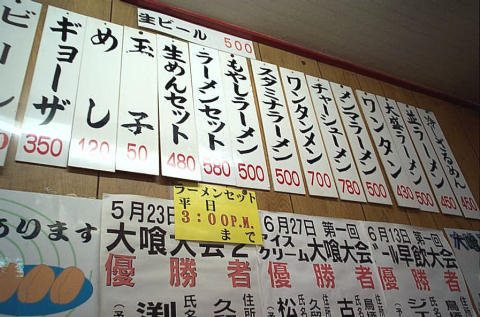 生ビール 500
ビール
ギョーザ 350
めし 120
玉子 50
生めんセット 480
ラーメンセット 580
もやしラーメン 500
スタミナラーメン 500
ワンタンメン 700
チャーシューメン 780
メンマラーメン 500
ワンタン 430
大盛ラーメン 500
並ラーメン 450
冷しざるめん 450
ラーメンセット
平日
3:00P.M.
まで
あります
5月23日
大喰大会
優勝者
渕
氏名
6月27日 第一回
アイスクリーム 大喰大会
優勝者
松
古
氏名
6月13日 第一回
ビール早飲大会
優勝者
氏名